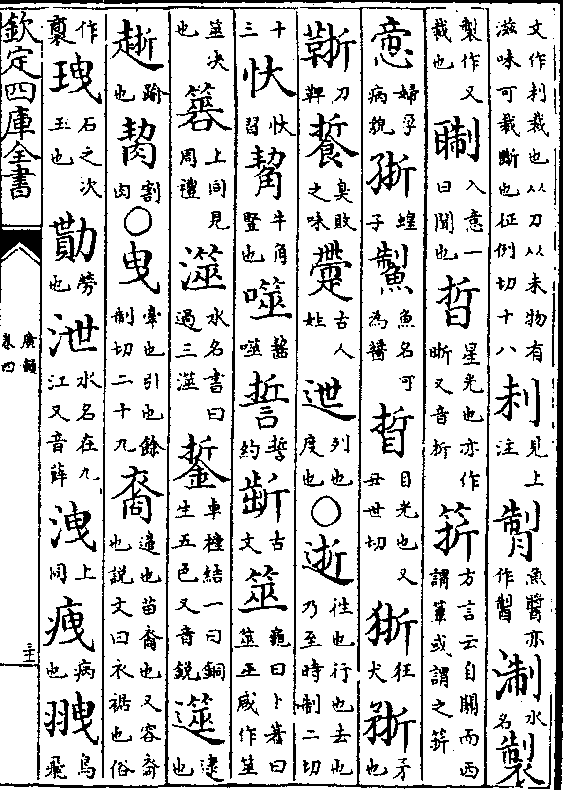 文作利裁也从刀从未物有滋味可裁斷也征例切十八 見上注 魚醬亦作 淛水名製
製作又裁也 入意一曰聞也晢星光也亦作晣又音折 方言云自關而西謂簟或謂之
婦孕病皃 蝗子 魚名可為醬 目光也又丑世切狾狂犬 矛也
刀鞞 臭敗之味 古人姓迣列也度也〇逝徃也行也去也乃至時制二切
十三忕忕習觢牛角豎也噬齧噬誓誓約 古文筮龜曰卜蓍曰筮巫咸作筮
筮决也簭上同見周禮澨水名書曰過三澨銴車樘結一曰銅生五色又音銳遾逮也
踰也 割肉〇曳牽也引也餘制切二十九裔邊也苗裔也又容裔也說文曰衣裾也俗
作 石之次玉也勩勞也泄水名在九江又音薛洩上同 病也 鳥飛
欽定四庫全書
廣韻
卷四